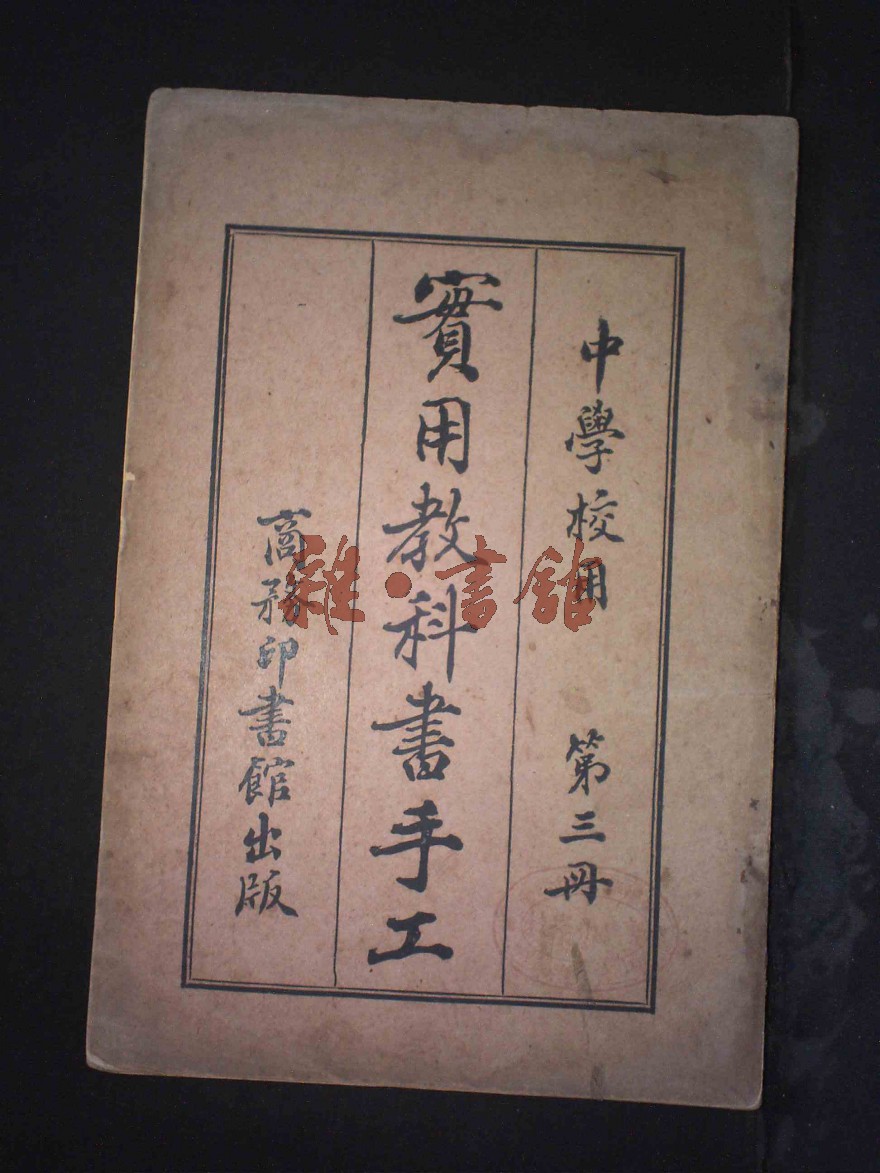 中學校用 第三冊
實用教科書手工
商務印書館出版
雜·書館